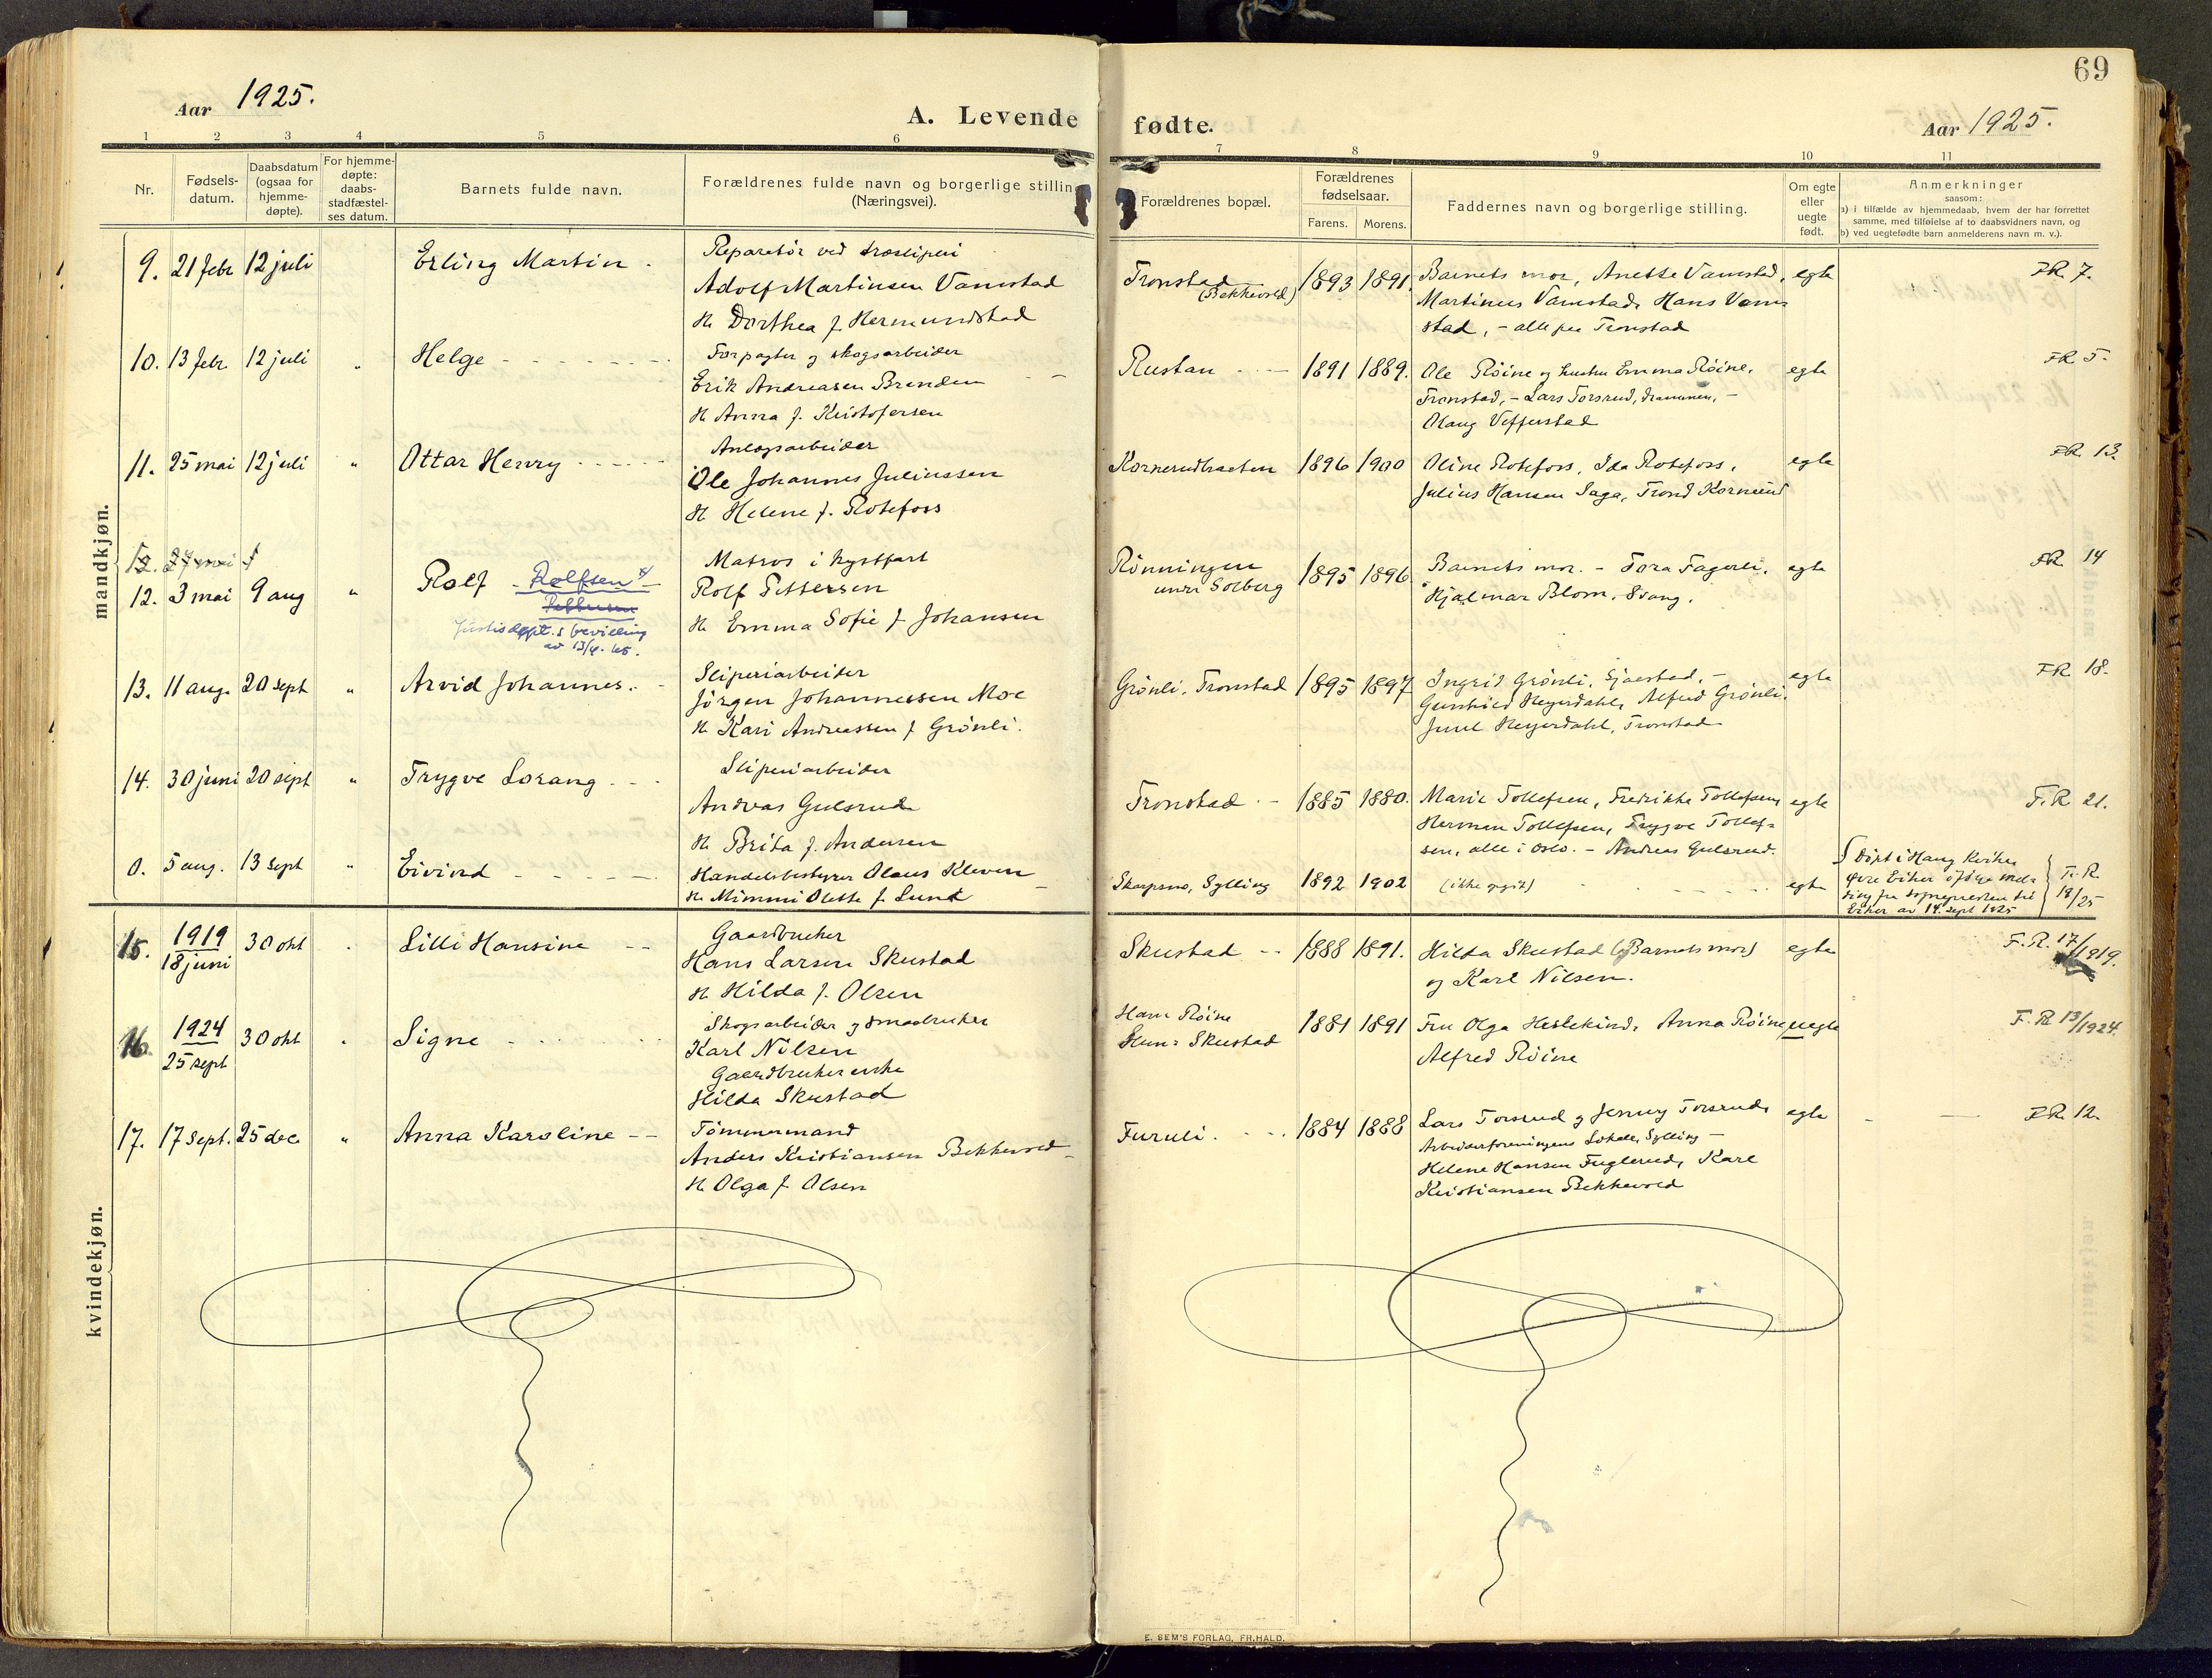 69
Aar 1925.
A. Levende fødte.
Aar 1925.
1 2 3 4 5 6 7 8 9 10 11
Nr.
Fødsels-
datum.
Daabsdatum
(ogsaa for
hjemme-
døpte).
For hjemme-
døpte:
daabs-
stadfæstel-
ses datum.
Barnets fulde navn.
Forældrenes fulde navn og borgerlige stilling
(Næringsvei).
Forældrenes bopæl.
Forældrenes
fødselsaar.
Farens. Morens.
Faddernes navn og borgerlige stilling.
Om egte
eller
uegte
født.
Anmerkninger
saasom:
a) i tilfælde av hjemmedaab, hvem der har forrettet
samme, med tilføielse af to daabsvidners navn, og
b) ved uegtefødte barn anmelderens navn m. v.).
mandkjøn.
9. 21 febr 12 juli
Erling Martin
Reparatør ved træsliperi
Adolf Martinsen Vamstad
H. Dorthea f. Hermundstad
Tronstad
(Bekkevold)
1893 1891.
Barnets mor, Anette Vamstad,
Martinus Vamstad, Hans Vam-
stad, - alle paa Tronstad
egte
FR. 7.
10. 13 febr. 12 juli "
Helge
Forpagter og skogsarbeider
Erik Andreasen Brenden
H. Anna f. Kristofersen
Rustan
1891 1889.
Ole Røine og hustru Emma Røine,
Tronstad, - Lars Torsrud, Drammen, -
Olaug Vefferstad
egte
FR. 5.
11. 25 mai 12 juli "
Ottar Henry
Anlægsarbeider
Ole Johannes Juliussen
H. Helene f. Rotefoss
Kornerudbraaten
1896 1900
Oline Rotefoss, Ida Rotefoss,
Julius Hansen Saga, Trond Kornerud
egte
FR. 13.
12. 27 mai
12. 3 mai 9 aug "
Rolf - Rolfsen x)
Pettersen
Justisdept.s bevilling
av 13/4. 45.
Matros i kystfart
Rolf Pettersen
H. Emma Sofie f. Johansen
Rønningen
under Solberg
1895 1896.
Barnets mor. - Tora Fagerli,
Hjalmar Blom, Svang.
egte
FR. 14
13. 11 aug. 20 sept "
Arvid Johannes.
Sliperiarbeider
Jørgen Johannessen Moe
H. Kari Andreassen f. Grønli.
Grønli, Tronstad
1895 1897
Ingrid Grønli, Sjaastad, -
Gunhild Heyerdahl, Alfred Grønli,
Juul Heyerdahl, Tronstad
egte
FR. 18.
14. 30 juni 20 sept "
Trygve Lorang
Sliperiarbeider
Andreas Gulsrud
H. Brita f. Andersen
Tronstad
1885 1880.
Marie Tollefsen, Fredrikke Tollefsen,
Herman Tollefsen, Trygve Tollef-
sen, alle i Oslo. - Andreas Gulsrud.
egte
F.R. 21.
0. 5 aug. 13 sept "
Eivind
Handelsbestyrer Olaus Kleven
H. Mimmi Olette f. Lund
Skarpsno, Sylling
1892 1902
(ikke opgit)
egte
Døpt i Haug kirke,
Øvre Eiker ifølge med-
deling fra sognepresten til
Eiker av 14. sept 1925
F. R.
19/25
kvindekjøn.
15. 1919
18 juni 30 okt
Lilli Hansine
Gaardbruker
Hans Larsen Skustad
H. Hilda f. Olsen
Skustad
1888 1891.
Hilda Skustad (Barnets mor)
og Karl Nilsen.
egte
F.R. 17/1919.
16. 1924
25 sept 30 okt
Signe
Skogsarbeider og smaabruker
Karl Nilsen
Gaardbrukerenke
Hilda Skustad
Ham: Røine
Hun: Skustad
1881 1891
Fru Olga Hestekind, Anna Røine,
Alfred Røine
uegte
F.R. 13/1924.
17. 17 sept. 25 dec. "
Anna Karoline
Tømmermand
Anders Kristiansen Bekkevold
H. Olga f. Olsen
Furuli.
1884 1888
Lars Torsrud og Jenny Torsrud,
Arbeiderforeningens Lokale, Sylling -
Helene Hansen Fuglerud, Karl
Kristiansen Bekkevold
egte
FR. 12.
E. SEM'S FORLAG, FR.HALD.